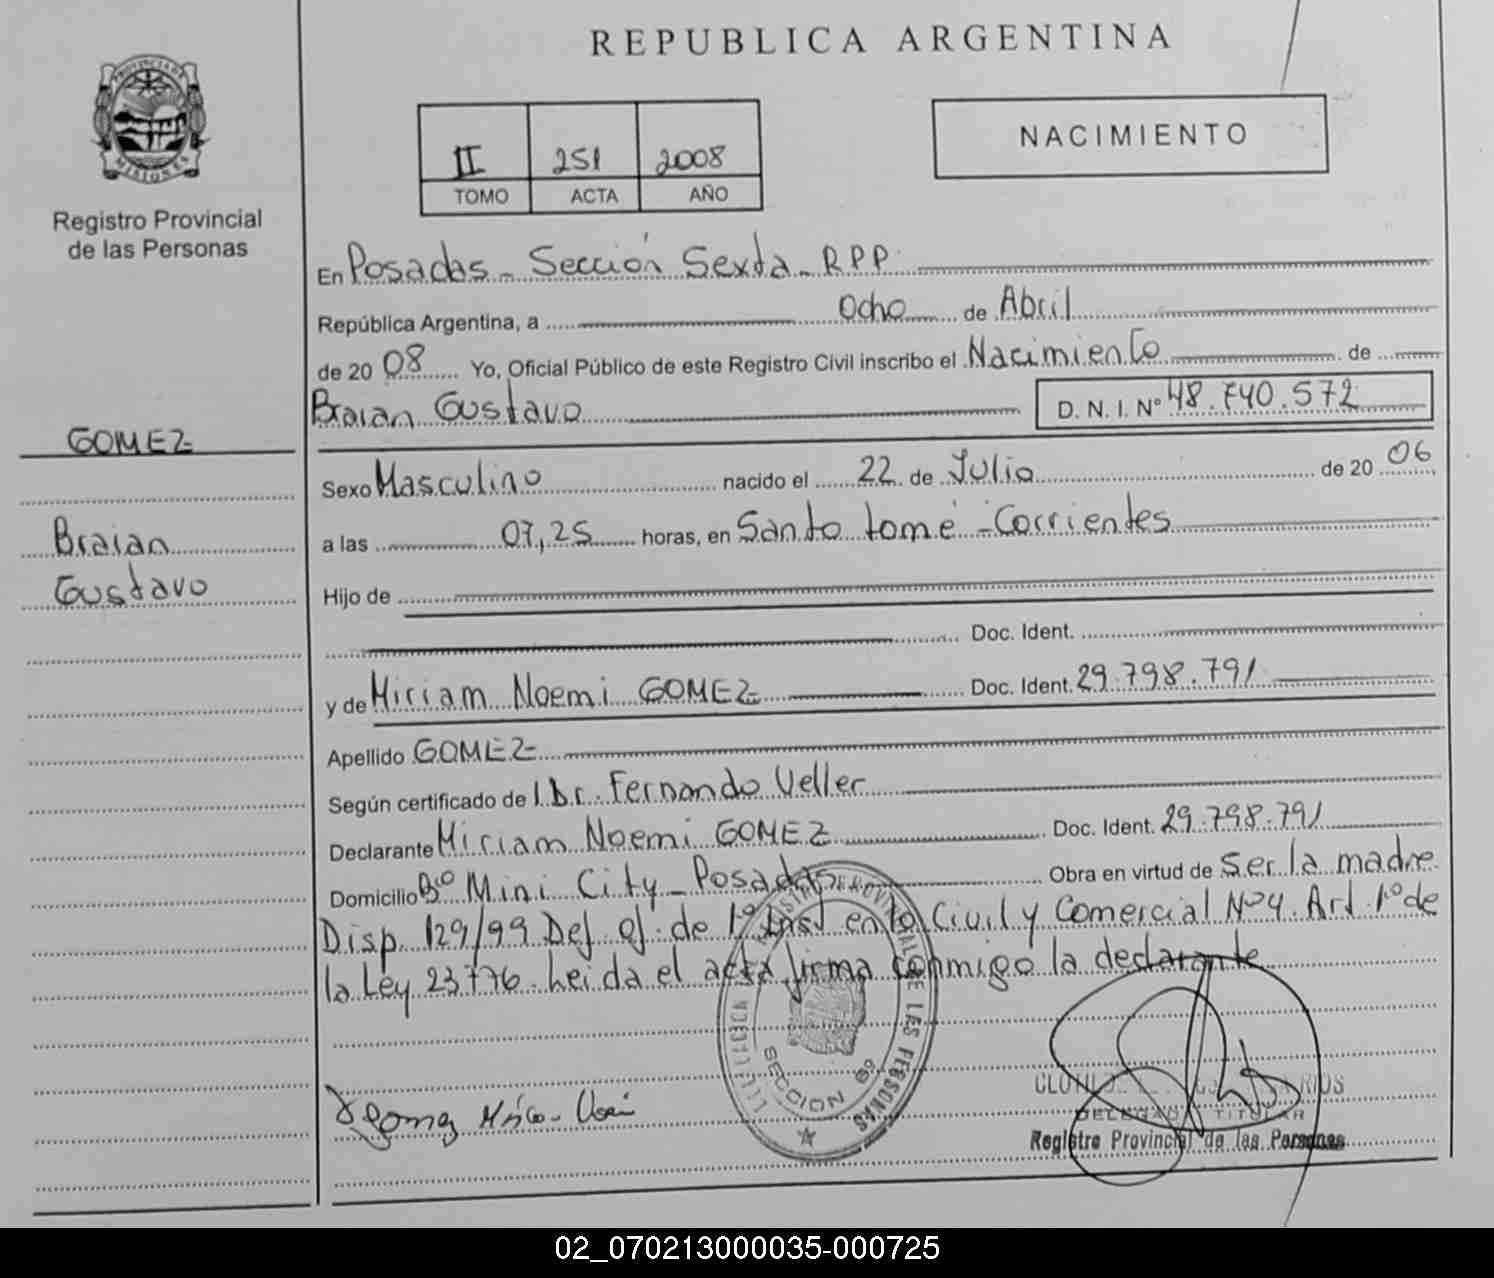 REPUBLICA ARGENTINA
PROVINCIA DE
MISIONES
Registro Provincial
de las Personas
II 251 2008
TOMO ACTA AÑO
NACIMIENTO
En Posadas - Sección Sexta - RPP.
República Argentina, a Ocho de Abril
de 20 08 Yo, Oficial Público de este Registro Civil inscribo el Nacimiento de
Braian Gustavo D. N. I. Nº 48.740.572
GOMEZ
Braian
Gustavo
Sexo Masculino nacido el 22 de Julio de 20 06
a las 07,25 horas, en Santo tomé - Corrientes
Hijo de
Doc. Ident.
y de Miriam Noemi GOMEZ Doc. Ident. 29.798.791
Apellido GOMEZ
Según certificado de l Dr. Fernando Veller
Declarante Miriam Noemi GOMEZ Doc. Ident. 29.798.791
Domicilio Bº Mini City - Posadas Obra en virtud de Ser la madre.
Disp. 129/99 Def. of. de 1º Inst en lo Civil y Comercial Nº 4. Art. 1º de
la Ley 23776. Leida el acta firma conmigo la declarante
SECCION 6º
DELEGADA TITULAR
Registro Provincial de las Personas
02_070213000035-000725